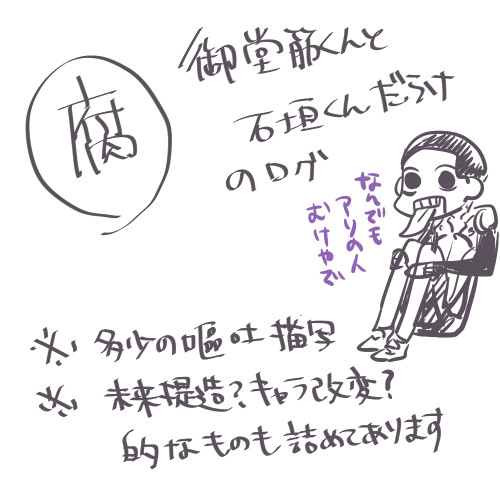 腐
御堂筋くんと
石垣くんだらけ
のログ
なんでも
アリの人
むけやで
※多少の嘔吐描写
※未来提造?キャラ改変?
的なものも詰めてあります